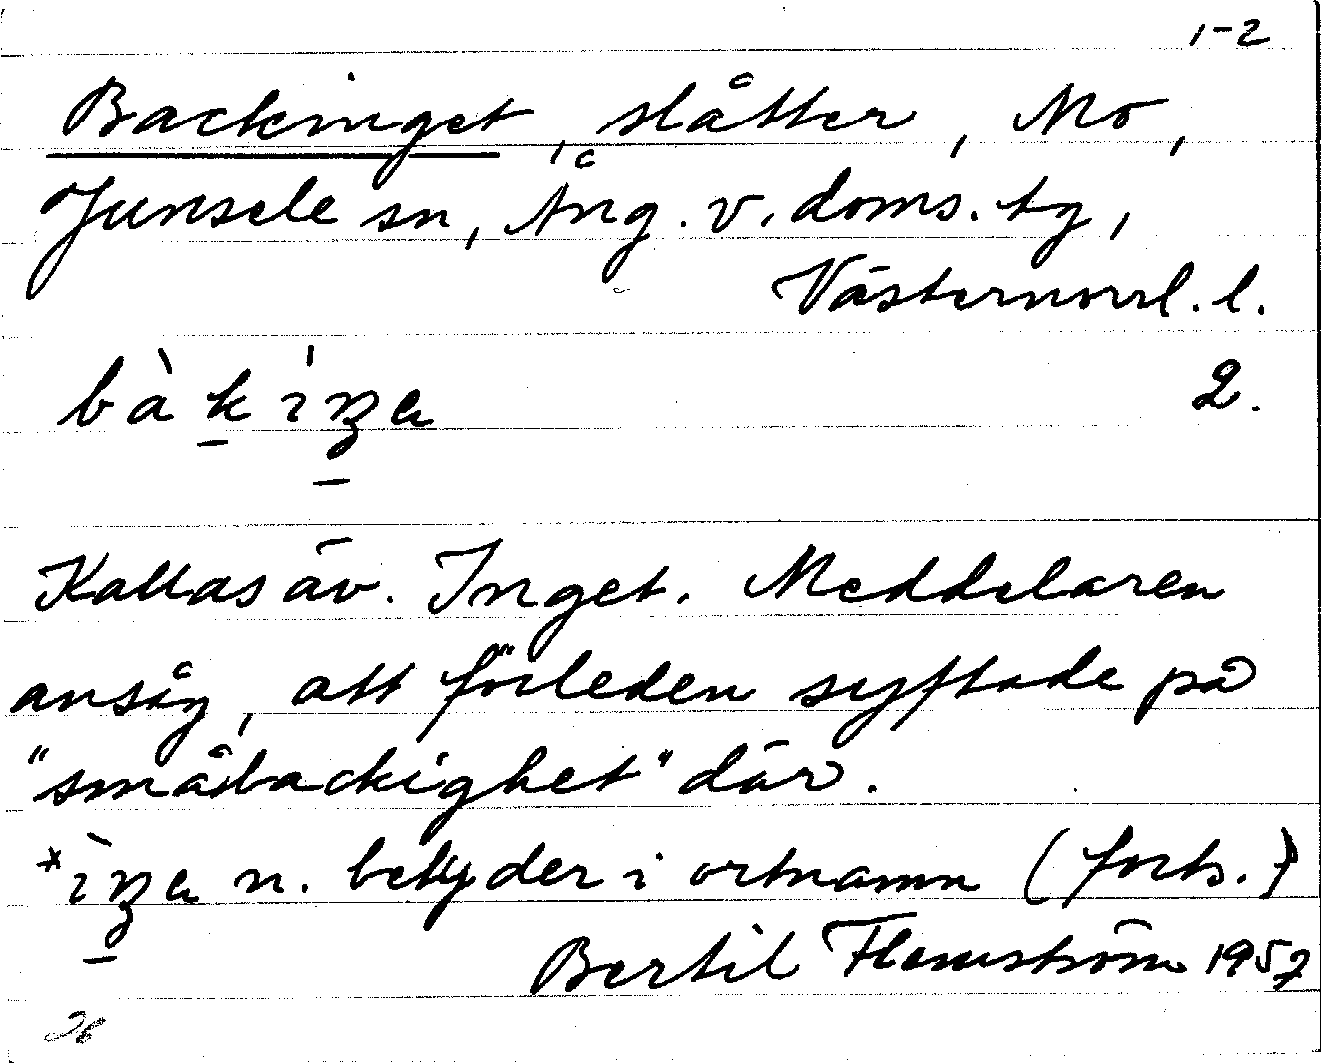 1-2
Backinget, slåtter, Mo,
Junsele sn, Ång. v. doms. tg,
Västernorrl. l.
bàkıŋa 2.
Kallas äv. Inget. Meddelaren
ansåg, att förleden syftade på
"småbackighet" där.
*ìŋa n. betyder i ortnamn (forts.)
Bertil Flemström 1957
28